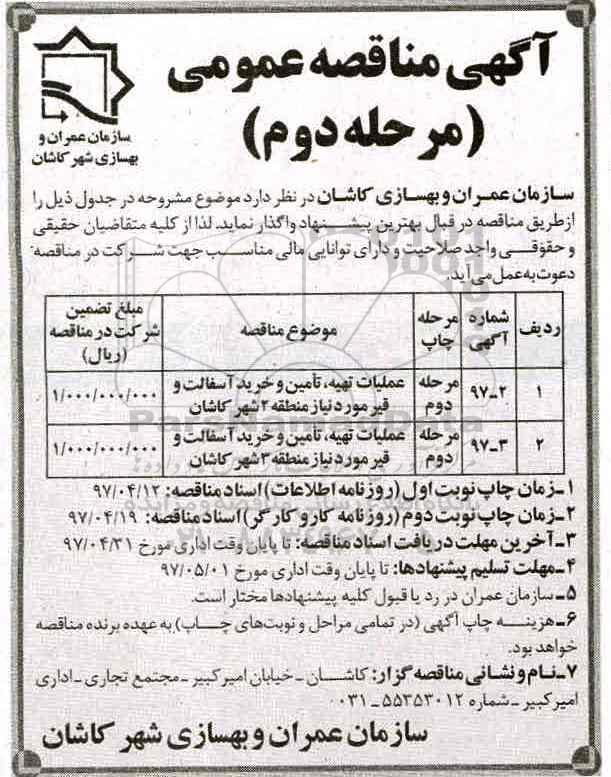 آگهی مناقصه عمومی
(مرحله دوم)
سازمان عمران و
بهسازی شهر کاشان
سازمان عمران و بهسازی کاشان در نظر دارد موضوع مشروحه در جدول ذیل را
از طریق مناقصه در قبال بهترین پیشنهاد واگذار نماید. لذا از کلیه متقاضیان حقیقی
و حقوقی واجد صلاحیت و دارای توانایی مالی مناسب جهت شرکت در مناقصه
دعوت به عمل می آید.
ردیف | شماره آگهی | مرحله چاپ | موضوع مناقصه | مبلغ تضمین شرکت در مناقصه (ریال)
۱ | ۲-۹۷ | مرحله دوم | عملیات تهیه، تأمین و خرید آسفالت و قیر مورد نیاز منطقه ۲ شهر کاشان | ۱/۰۰۰/۰۰۰/۰۰۰
۲ | ۳-۹۷ | مرحله دوم | عملیات تهیه، تأمین و خرید آسفالت و قیر مورد نیاز منطقه ۳ شهر کاشان | ۱/۰۰۰/۰۰۰/۰۰۰
۱-زمان چاپ نوبت اول (روزنامه اطلاعات) اسناد مناقصه: ۹۷/۰۴/۱۲
۲-زمان چاپ نوبت دوم (روزنامه کار و کارگر) اسناد مناقصه: ۹۷/۰۴/۱۹
۳-آخرین مهلت دریافت اسناد مناقصه: تا پایان وقت اداری مورخ ۹۷/۰۴/۳۱
۴-مهلت تسلیم پیشنهادها: تا پایان وقت اداری مورخ ۹۷/۰۵/۰۱
۵-سازمان عمران در رد یا قبول کلیه پیشنهادها مختار است.
۶-هزینه چاپ آگهی (در تمامی مراحل و نوبت‌های چاپ) به عهده برنده مناقصه
خواهد بود.
۷-نام و نشانی مناقصه گزار: کاشان - خیابان امیرکبیر - مجتمع تجاری - اداری
امیرکبیر - شماره ۵۵۳۵۳۰۱۲-۰۳۱
سازمان عمران و بهسازی شهر کاشان
ParsNamadData